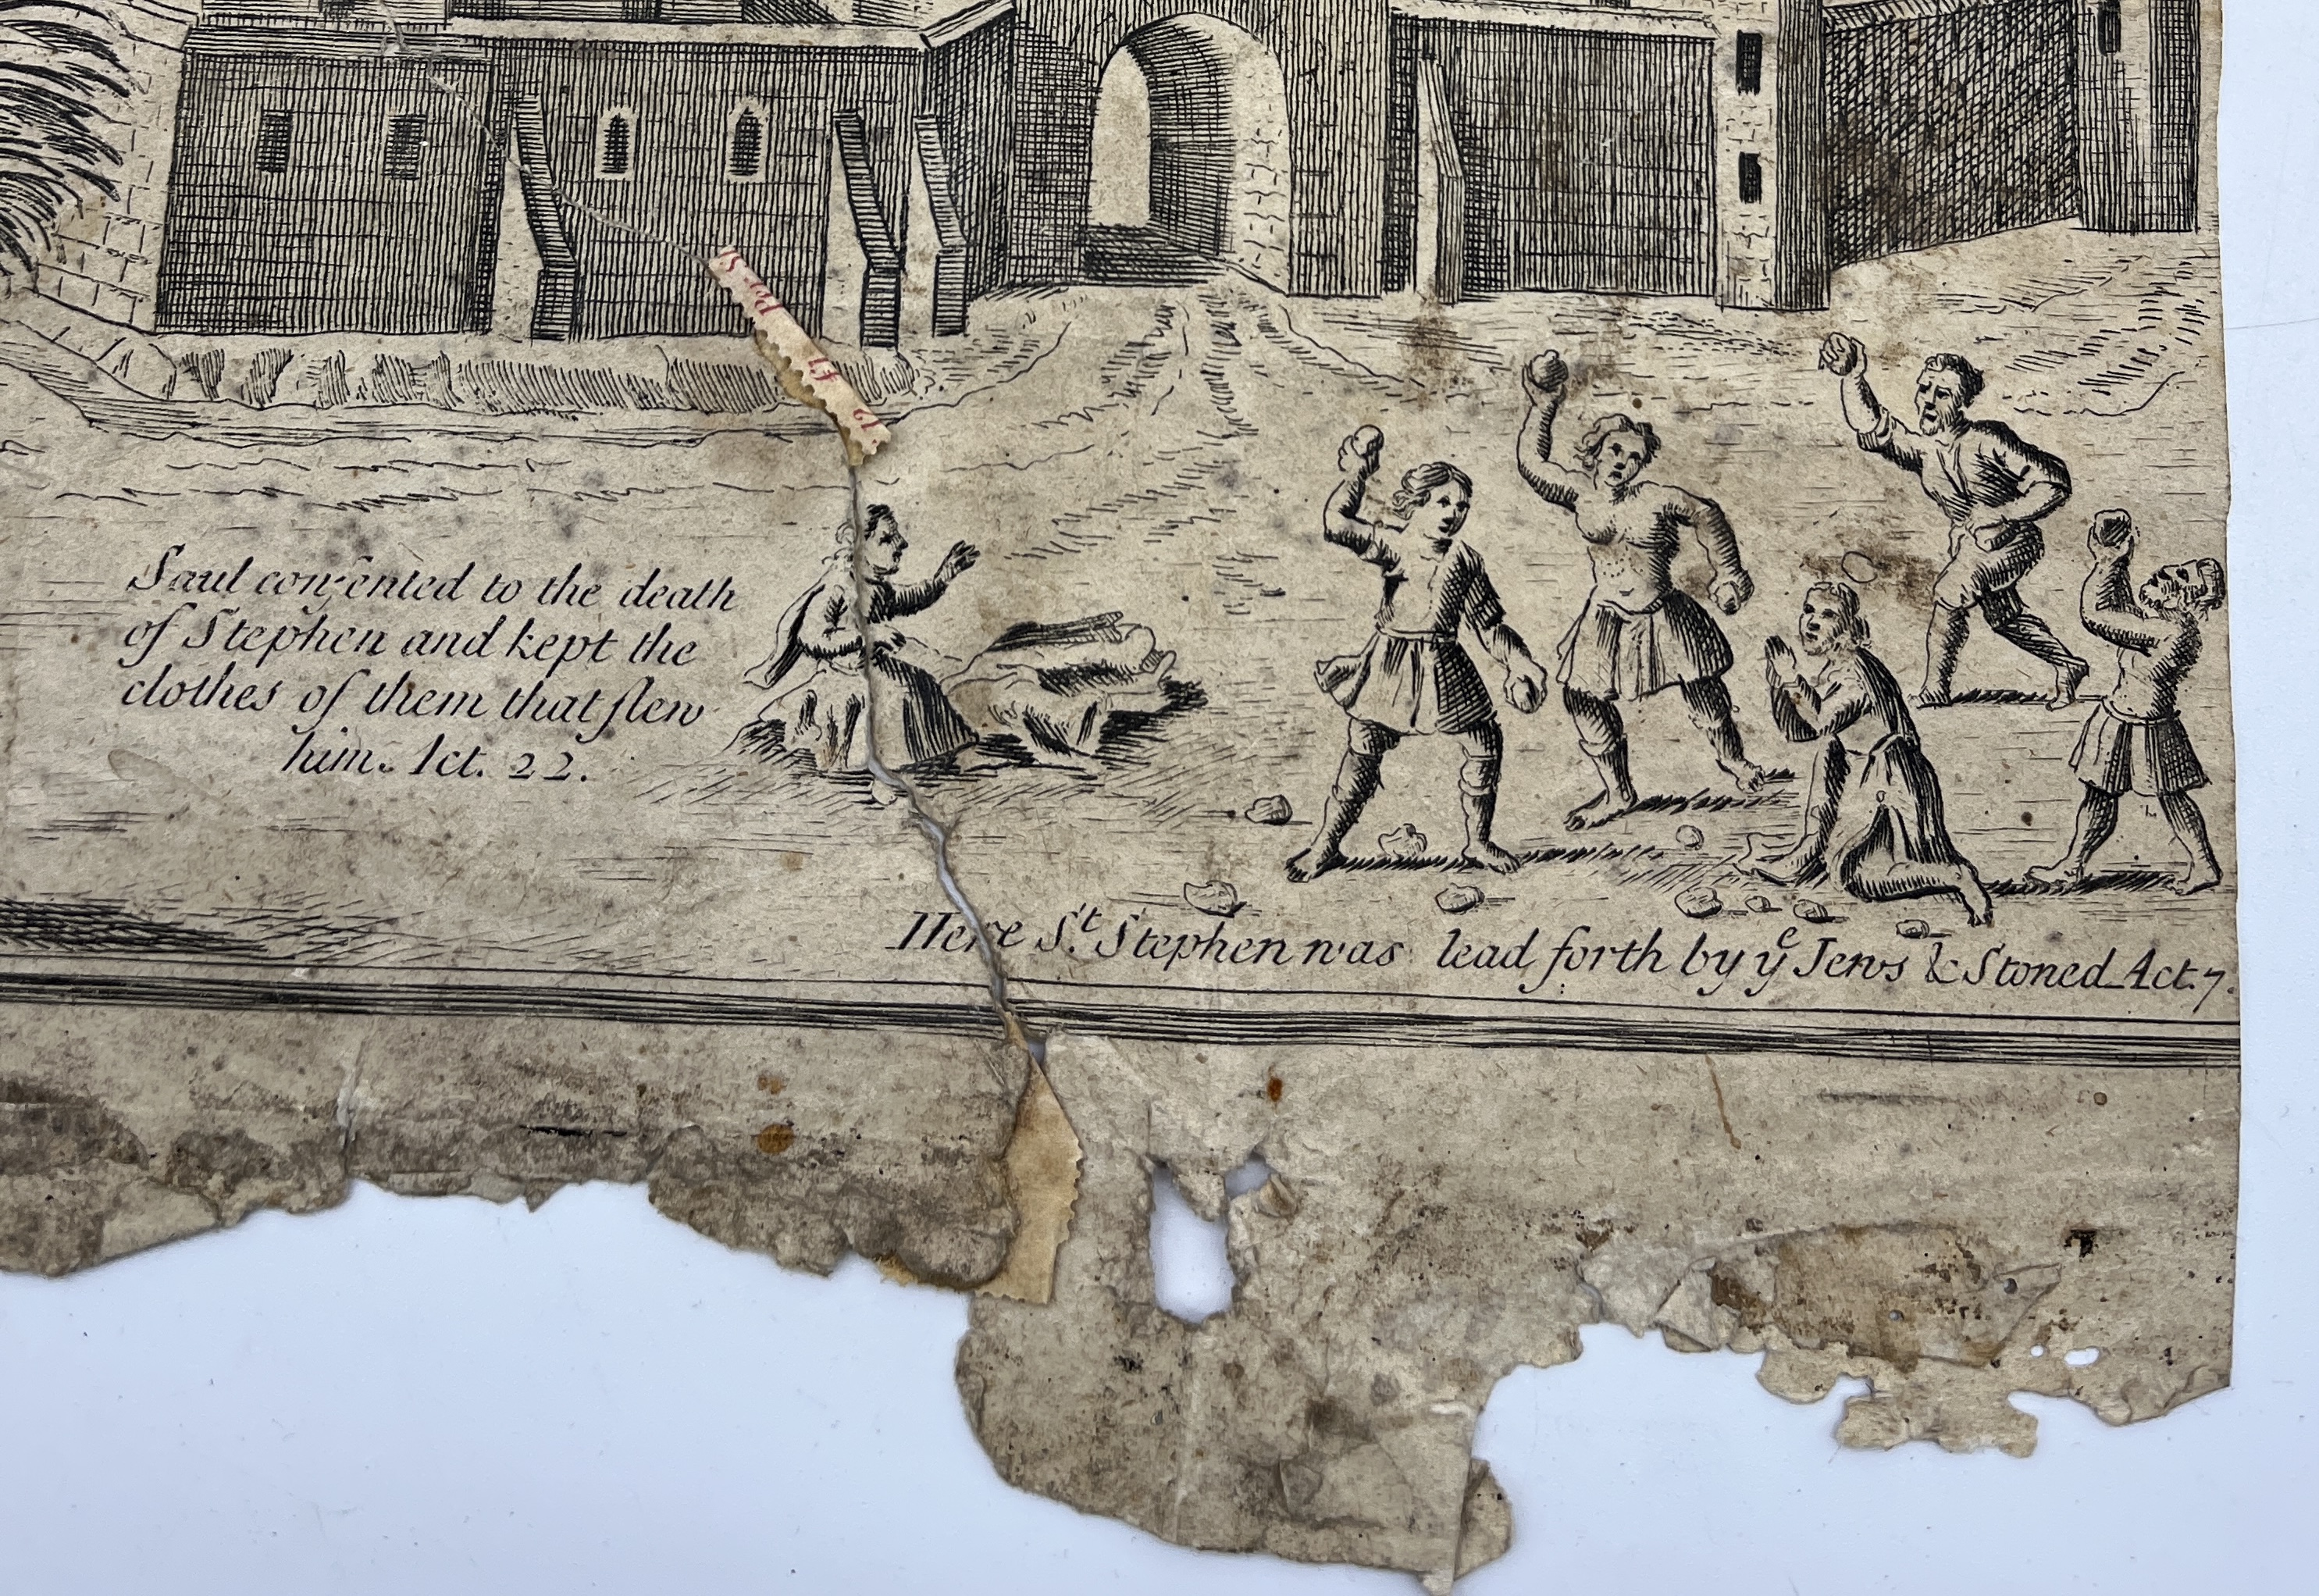 Saul consented to the death
of Stephen and kept the
clothes of them that slew
him. Act. 22.
Here St. Stephen was lead forth by ye Jews & Stoned Act. 7.